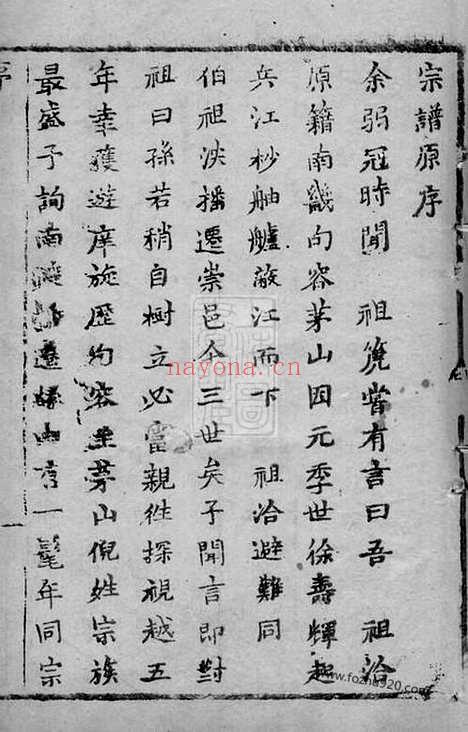 宗譜原序
余弱冠時聞 祖範嘗有言曰吾 祖洽
原籍南畿句容茅山因元季世徐壽輝起
兵江 舳艫蔽江而下 祖洽避難同
伯祖泱播遷崇邑今三世矣予聞言即對
祖曰孫若稍自樹立必當親往探視越五
年幸獲遊庠旋歷句容至茅山倪姓宗族
最盛予詢南 遷 由有一髦年同宗
序
一
nayona.cn
www.fozhu920.com